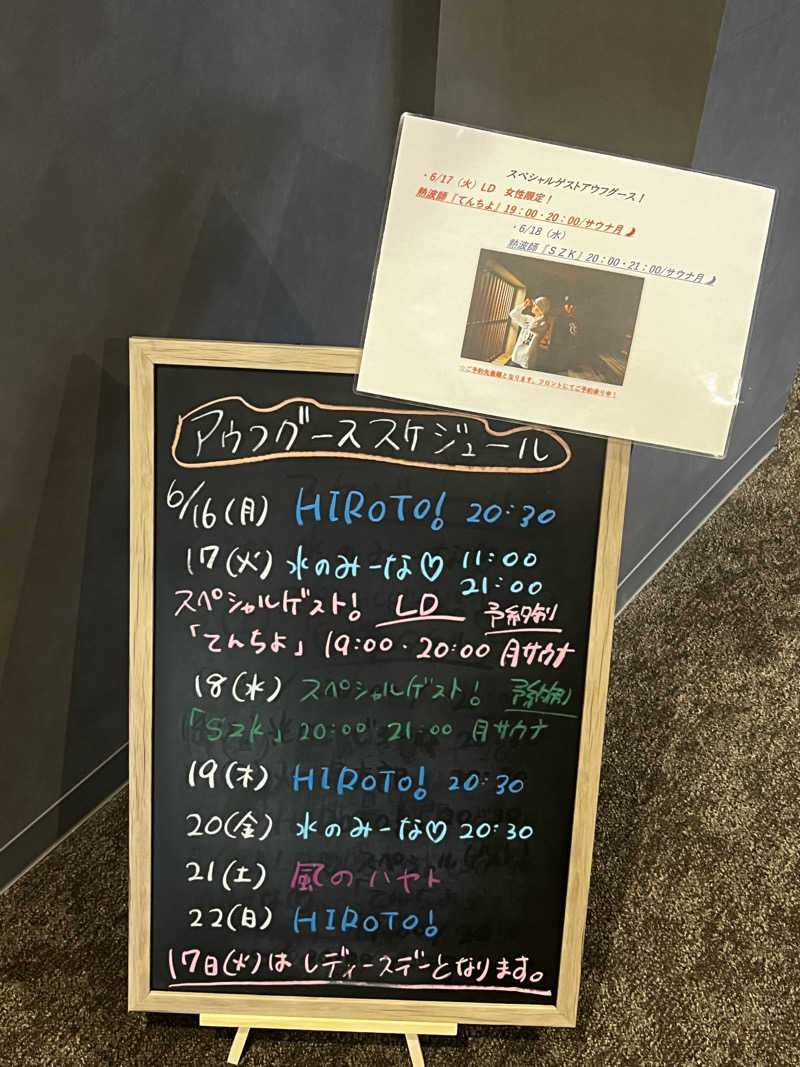 スペシャルゲストアウフグース！
・6/17（火）LD　女性限定！
熱波師『てんちよ』19：00・20：00/サウナ月
・6/18（水）
熱波師『ＳＺＫ』20：00・21：00/サウナ月
☆ご予約先着順となります。フロントにてご予約承り中！
アウフグーススケジュール
6/16(月) HIROTO! 20:30
17(火) 水のみーな♡ 11:00
21:00
スペシャルゲスト! LD 予約制
「てんちよ」 19:00・20:00 月サウナ
18(水) スペシャルゲスト! 予約制
「SZK」 20:00 21:00 月サウナ
19(木) HIROTO! 20:30
20(金) 水のみーな♡ 20:30
21(土) 風のハヤト
22(日) HIROTO!
17日(火)は レディースデーとなります。